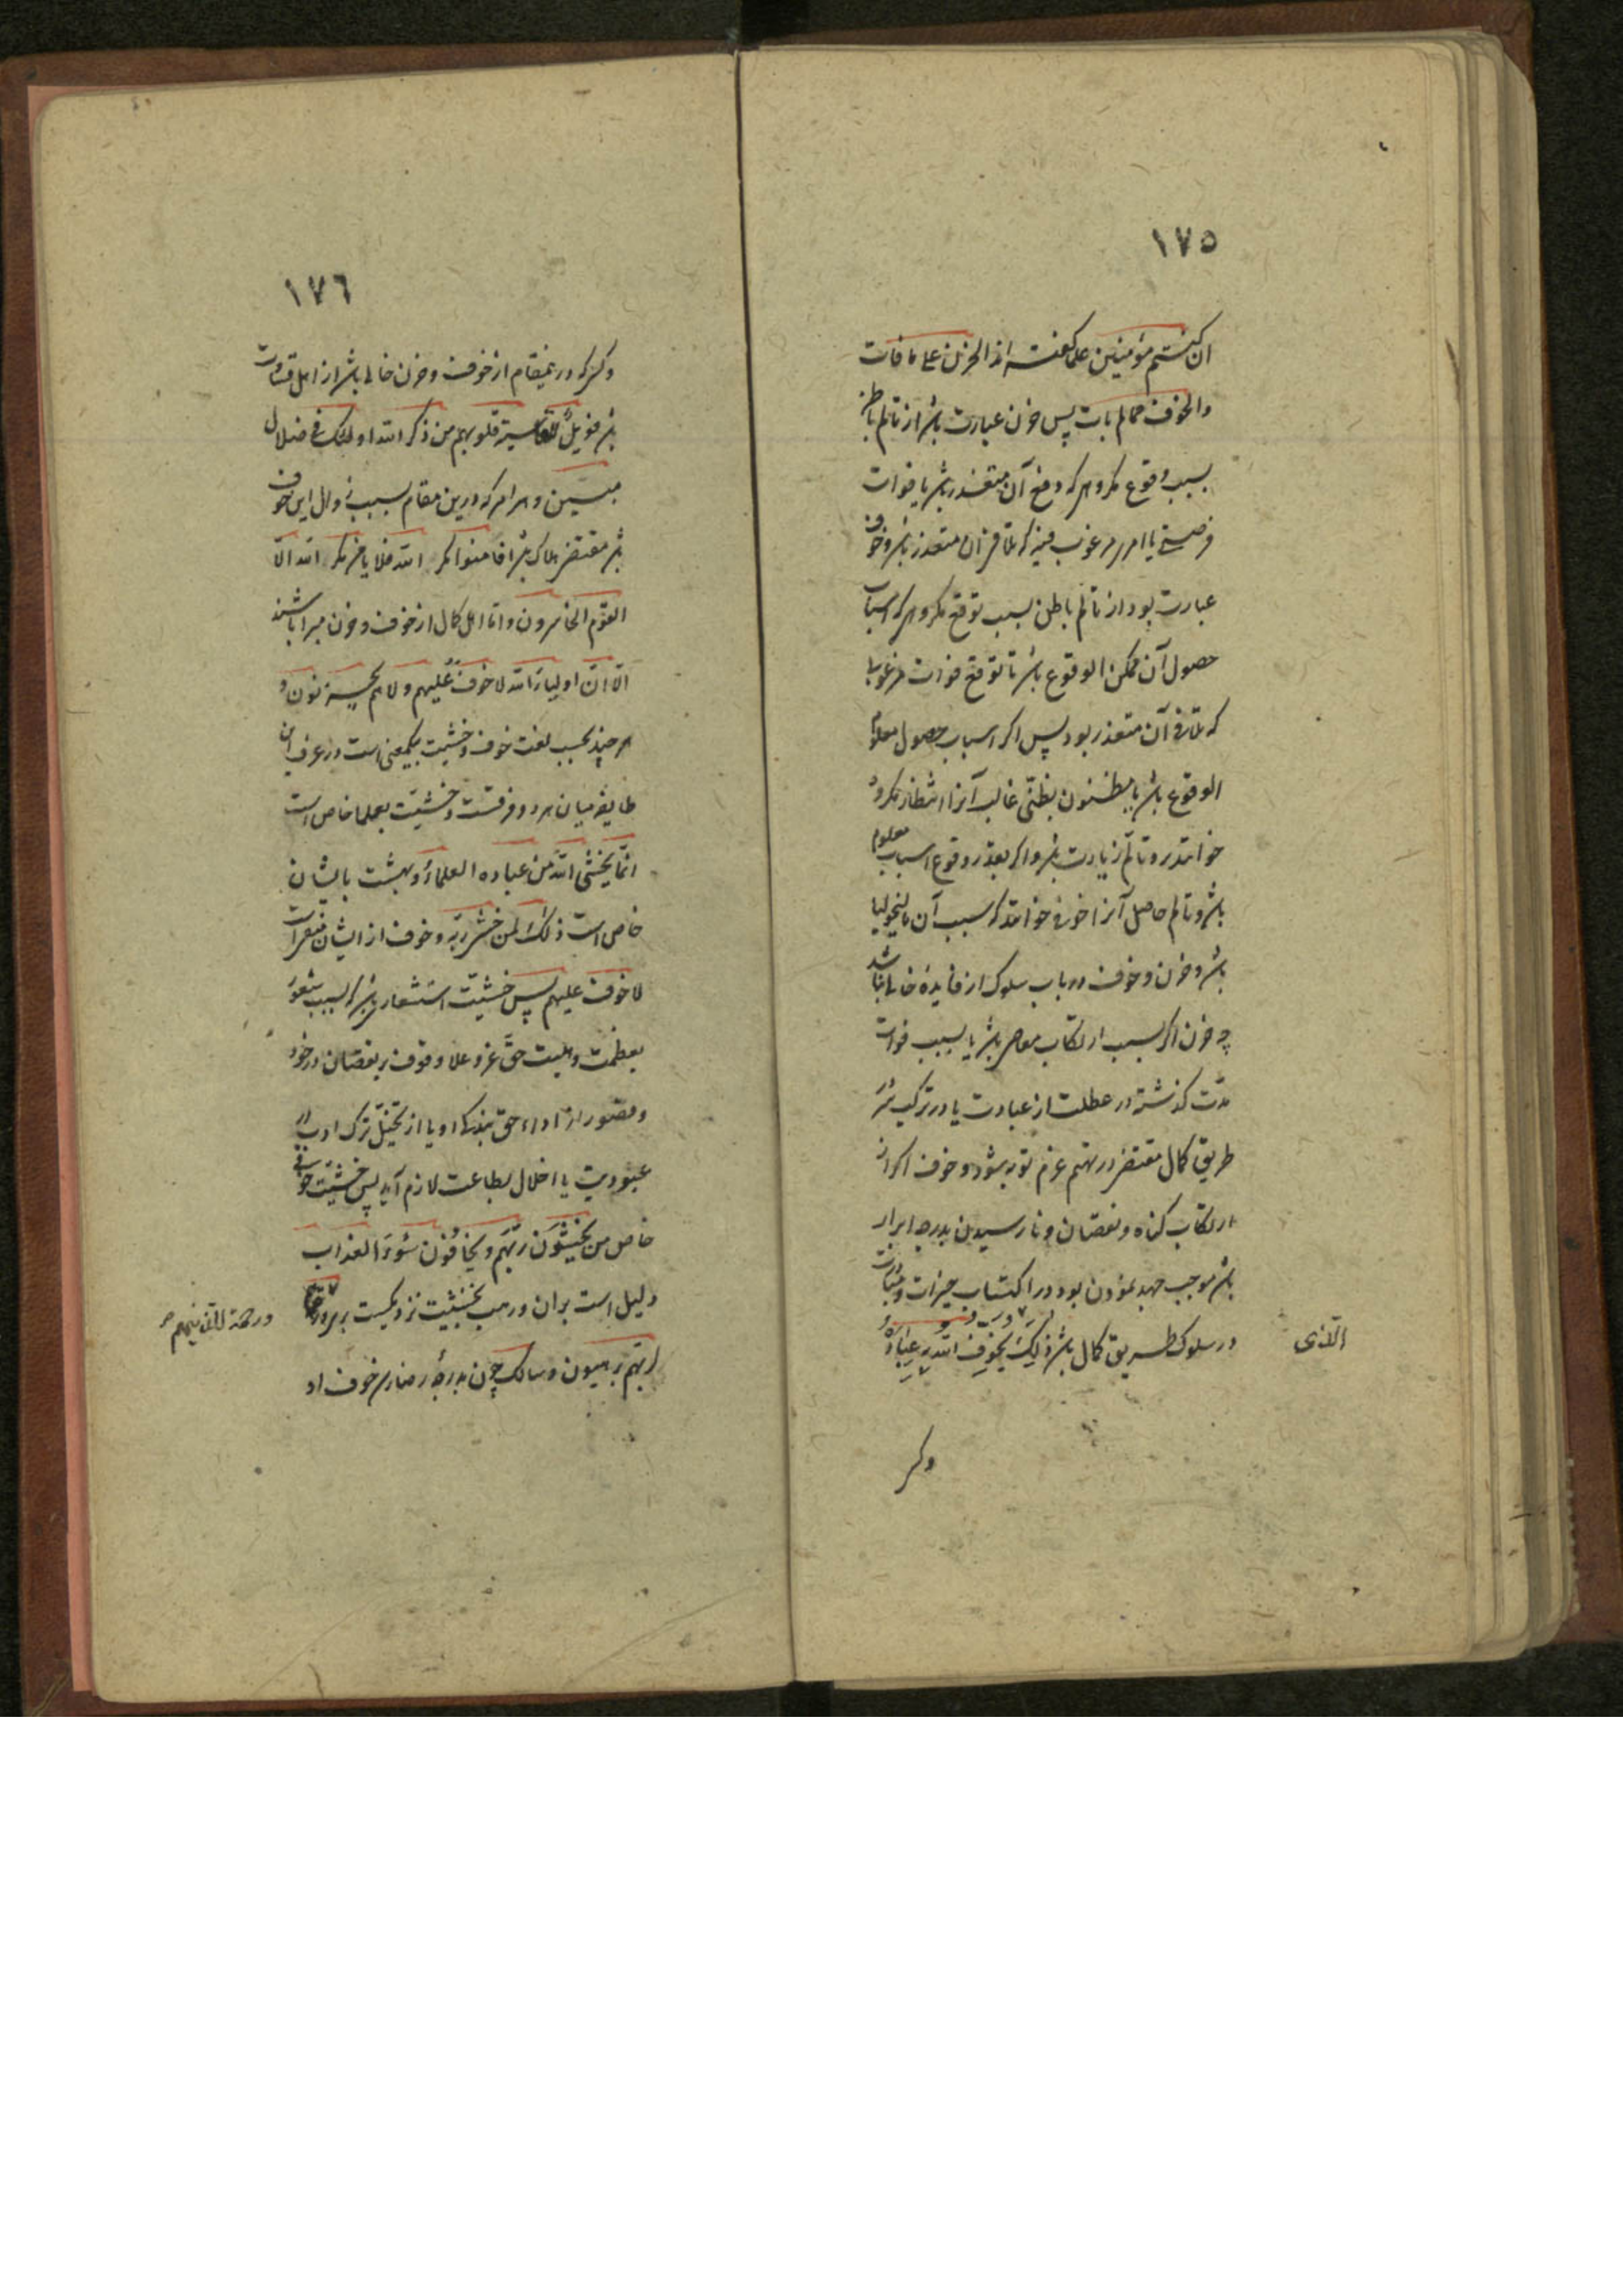 ١٧٥
ان کنتم مؤمنین علما کفته اند الحزن علی ما فات
والخوف مما لم یات پس حزن عبارت باشد از تالم باطن
بسبب وقوع مکروهی که دفع آن متعذر باشد یا فوات
فرصتی یا امری مرغوب فیه که تلافی آن متعذر باشد و خوف
عبارت بود از تالم باطن بسبب توقع مکروهی که اسباب
حصول آن ممکن الوقوع باشد یا توقع فوات مرغوبی
که تلافی آن متعذر بود پس اکر اسباب حصول معلوم
الوقوع باشد یا مظنون بظنی غالب آنرا انتظار مکروه
خوانند و تالم زیادت باشد و اکر بعدم وقوع اسباب معلوم
باشد و تالم حاصل آنرا خوفی خوانند که سبب آن مالیخولیا
باشد و حزن و خوف در باب سلوک از فایدهٔ خالی نباشد
چه حزن اکر سبب ارتکاب معاصی باشد یا بسبب فوات
مدت کذشته در عطلت از عبادت یا در ترک سیر
طریق کمال مقتضی تصمیم عزم توبه شود و خوف اکر از
ارتکاب کناه و نقصان و نارسیدن بدرجه ابرار
باشد موجب جهد نمودن بود در اکتساب خیرات و مبادرت
در سلوک طریق کمال باشد ذلک یخوف الله به عباده
وکسی
١٧٦
وکسی که درینمقام از خوف و حزن خالی باشد از اهل قساوت
باشد فویل للقاسیة قلوبهم من ذکر الله اولئک فی ضلال
مبین و هر امر که درین مقام بسبب زوال این خوف
باشد مقتضی هلاک باشد افامنوا مکر الله فلا یامن مکر الله الا
القوم الخاسرون و اما اهل کمال از خوف و حزن مبرا باشند
الا ان اولیاء الله لا خوف علیهم و لا هم یحزنون و
هر چند بحسب لغت خوف و خشیت بیکمعنی است در عرف این
طایفه میان هر دو فرقست و خشیت بعلما خاص است
انما یخشی الله من عباده العلماء و بهشت بایشان
خاص است ذلک لمن خشی ربه و خوف از ایشان منفی است
لا خوف علیهم پس خشیت استشعاری باشد که بسبب شعور
بعظمت و هیبت حق عز و علا و وقوف بر نقصان در خود
و قصور از اداء حق بندکی او یا از تخیل ترک ادب در
عبودیت یا اخلال بطاعت لازم آید پس خشیت خوفی
خاص من یخشون ربهم و یخافون سوء العذاب
دلیل است بران و رهب بخشیت نزدیکست
لربهم یرهبون و سالک چون بدرجهٔ رضا رسد خوف او